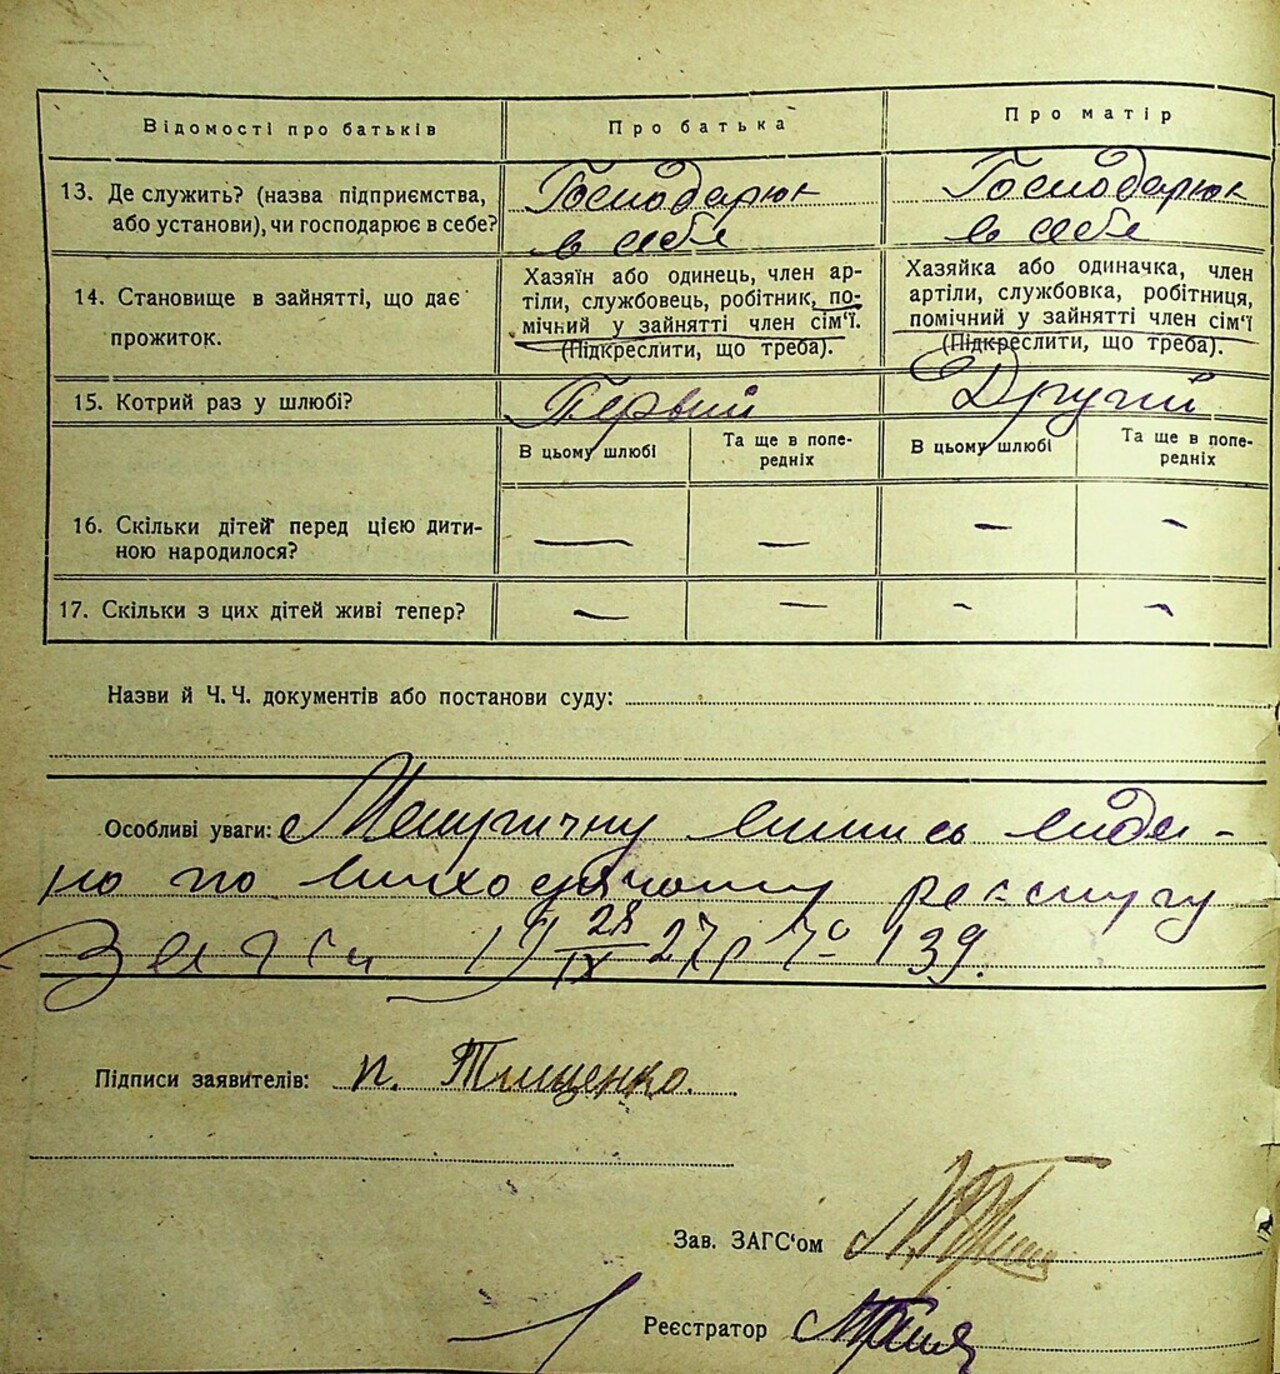 Відомості про батьків
Про батька
Про матір
13. Де служить? (назва підприємства,
або установи), чи господарює в себе?
Господарює
в себе
Господарює
в себе
14. Становище в зайнятті, що дає
прожиток.
Хазяїн або одинець, член ар-
тіли, службовець, робітник, по-
мічний у зайнятті член сім'ї.
(Підкреслити, що треба).
Хазяйка або одиначка, член
артіли, службовка, робітниця,
помічний у зайнятті член сім'ї
(Підкреслити, що треба).
15. Котрий раз у шлюбі?
Первий
Другий
В цьому шлюбі
Та ще в попе-
редніх
В цьому шлюбі
Та ще в попе-
редніх
16. Скільки дітей перед цією дити-
ною народилося?
— — — —
17. Скільки з цих дітей живі тепер?
— — — —
Назви й Ч. Ч. документів або постанови суду:
Особливі уваги: Метричну випись вида-
но по
19 28/IX 27р № 139.
Підписи заявителів: п. Тищенко.
Зав. ЗАГС'ом
Реєстратор